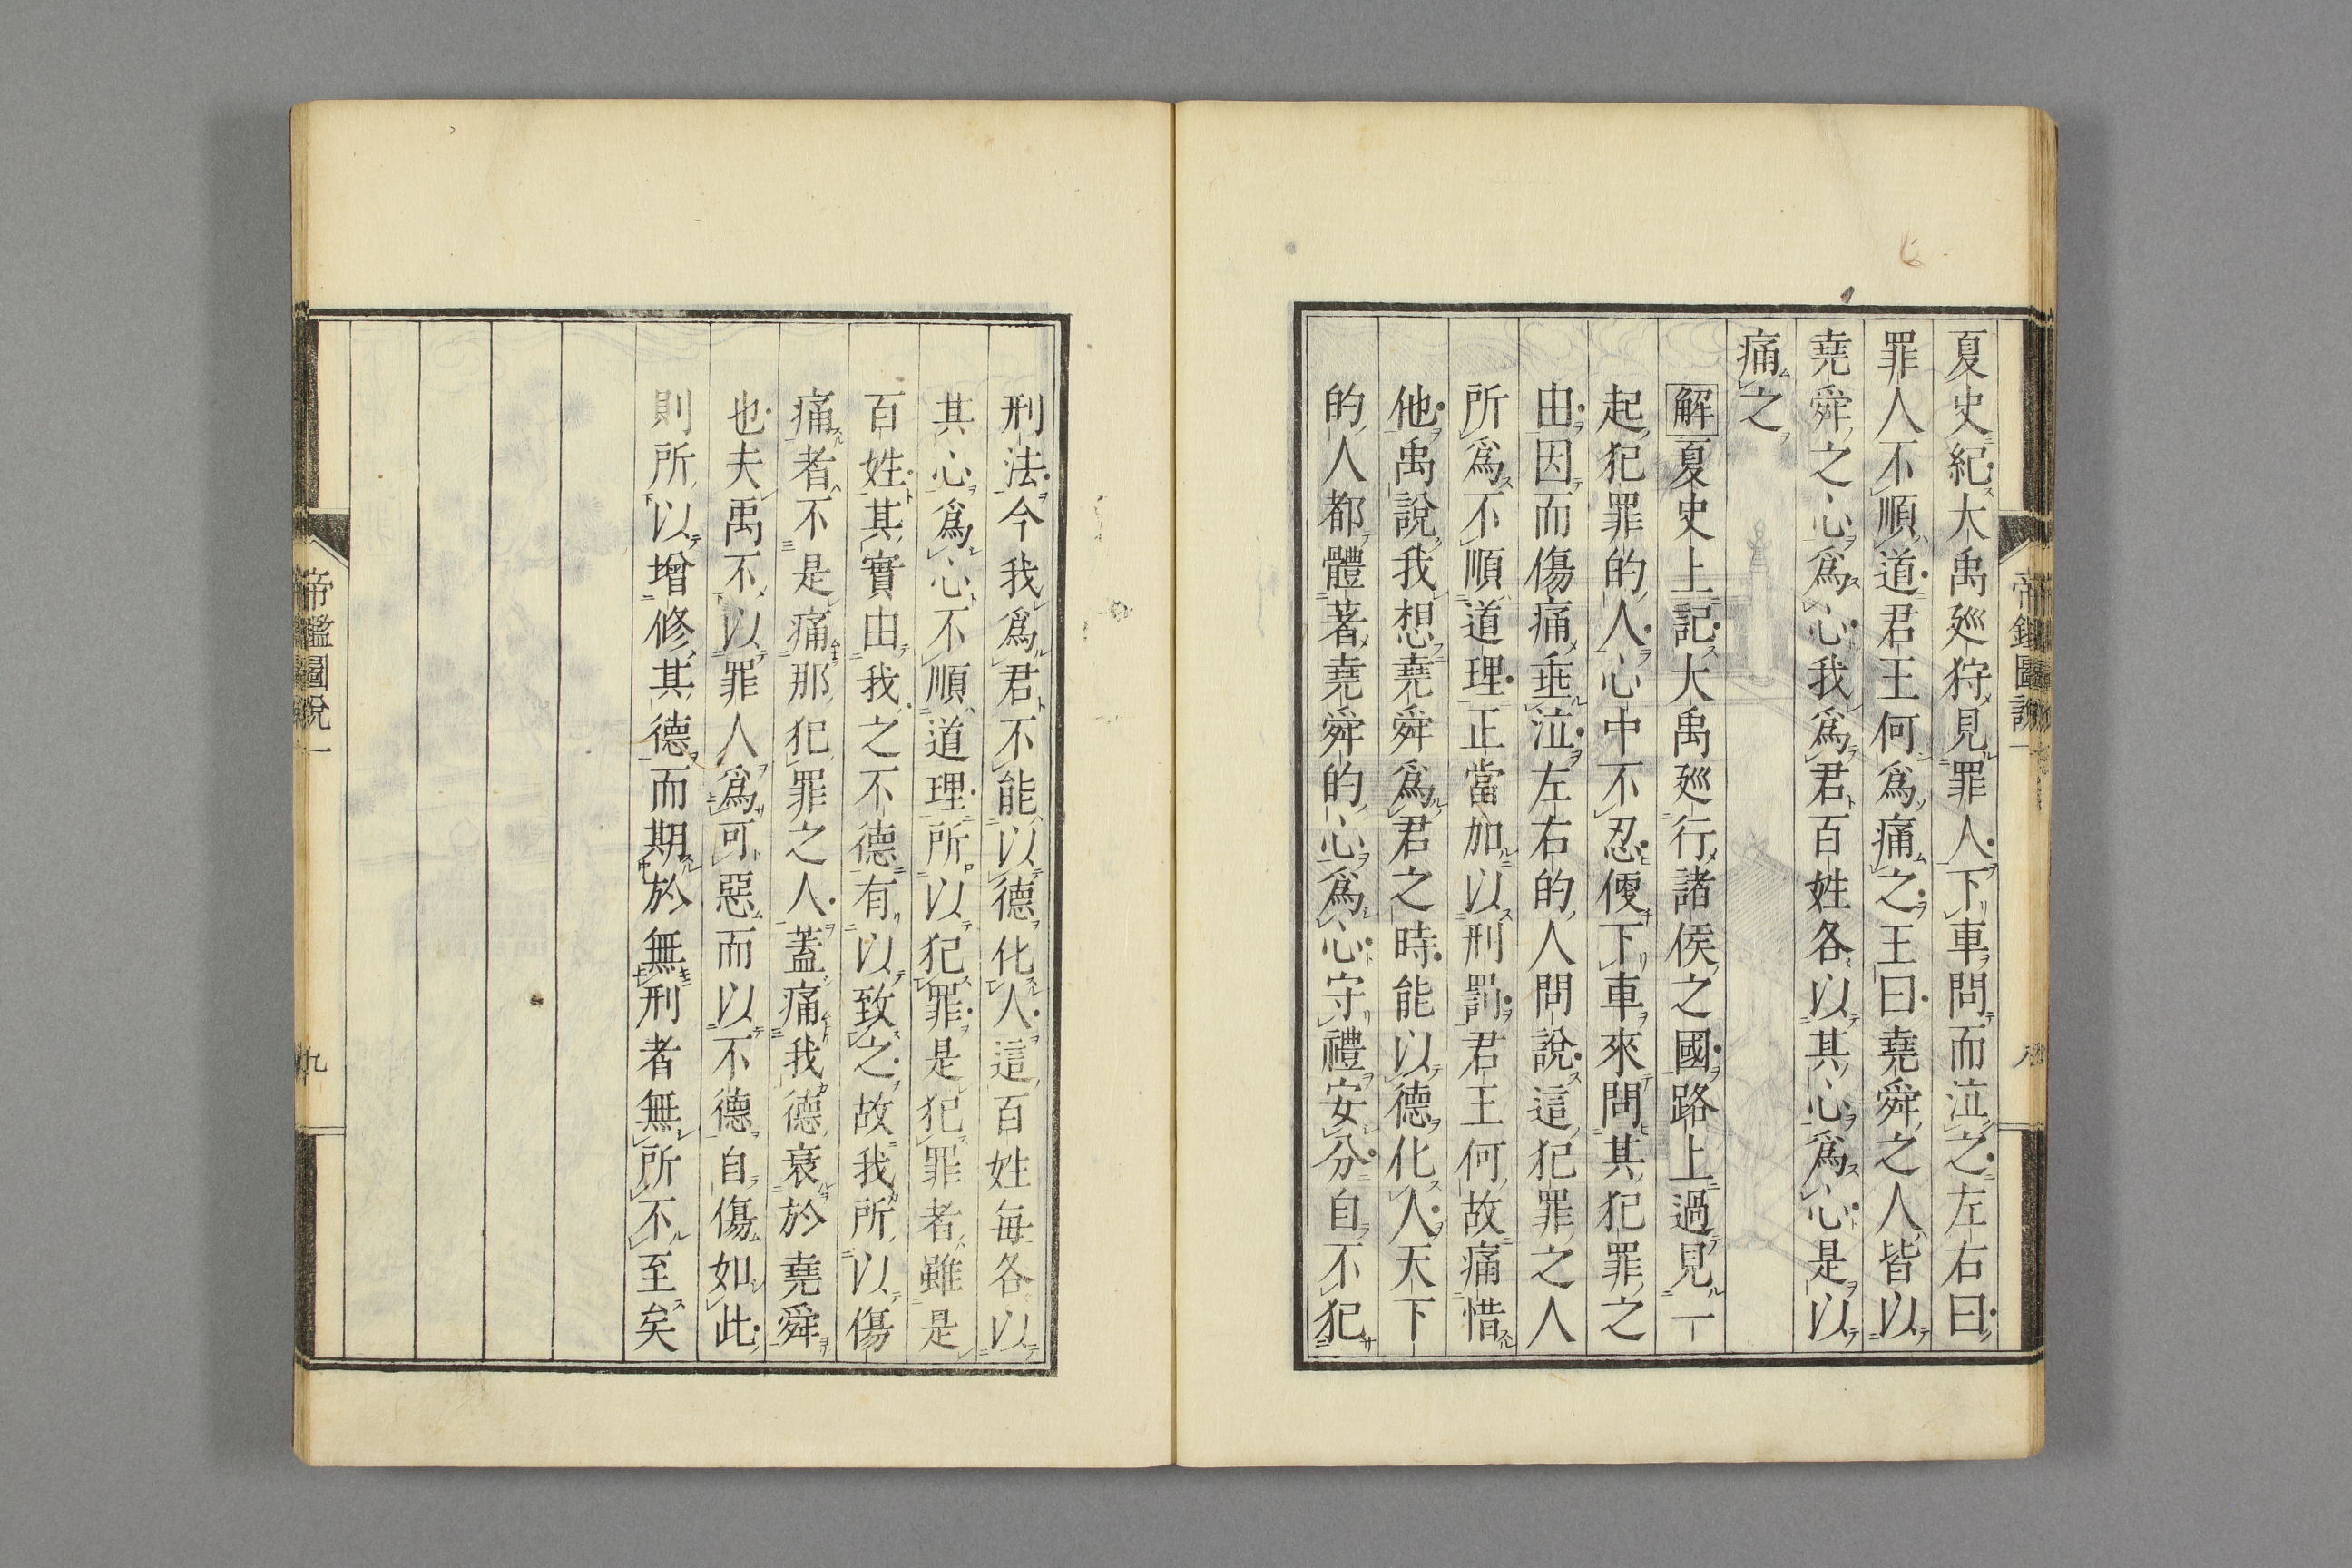 夏史紀大禹廵狩見罪人下車問而泣之左右曰
罪人不順道君王何爲痛之王曰堯舜之人皆以
堯舜之心爲心我爲君百姓各以其心爲心是以
痛之
解夏史上記大禹廵行諸侯之國路上過見一
起犯罪的人心中不忍便下車來問其犯罪之
由因而傷痛垂泣左右的人問說這犯罪之人
所爲不順道理正當加以刑罰君王何故痛惜
他禹說我想堯舜爲君之時能以德化人天下
的人都體著堯舜的心爲心守禮安分自不犯
刑法今我爲君不能以德化人這百姓每各以
其心爲心不順道理所以犯罪是犯罪者雖是
百姓其實由我之不德有以致之故我所以傷
痛者不是痛那犯罪之人蓋痛我德衰於堯舜
也夫禹不以罪人爲可惡而以不德自傷如此
則所以增修其德而期於無刑者無所不至矣
帝鑑圖說一
九